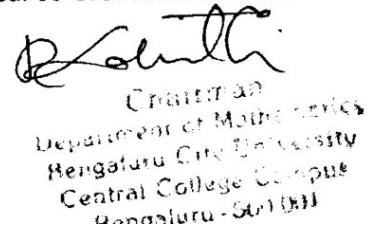 Chairman
Department of Mathematics
Bengaluru City University
Central College Campus
Bengaluru - 560 001